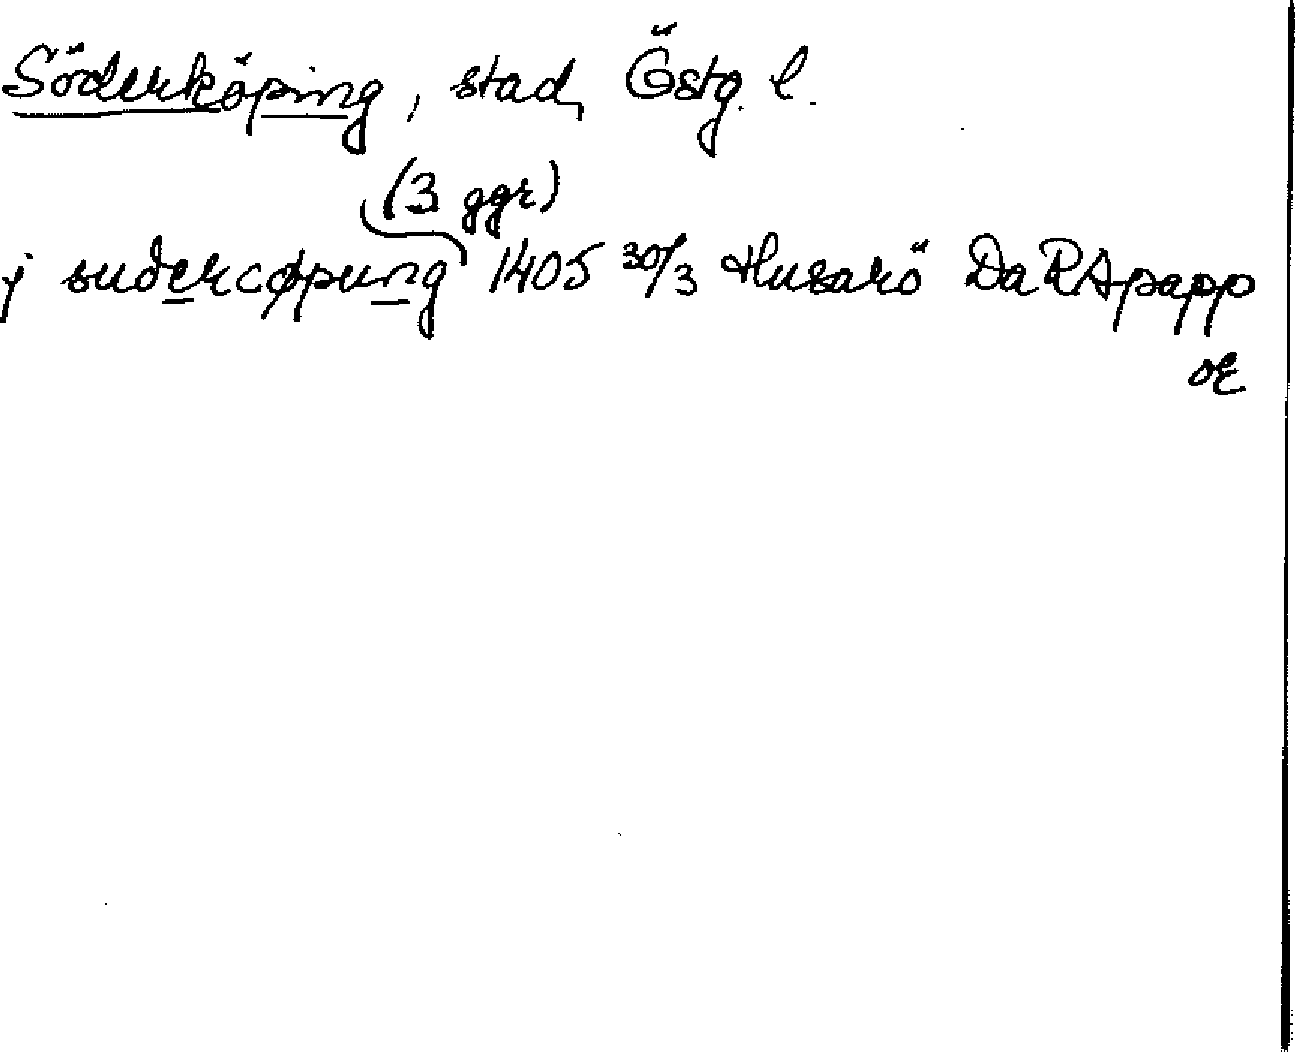 Söderköping, stad, Östg. l.
(3 ggr)
j sudercøpung 1405 30/3 Husarö DaRApapp
OE